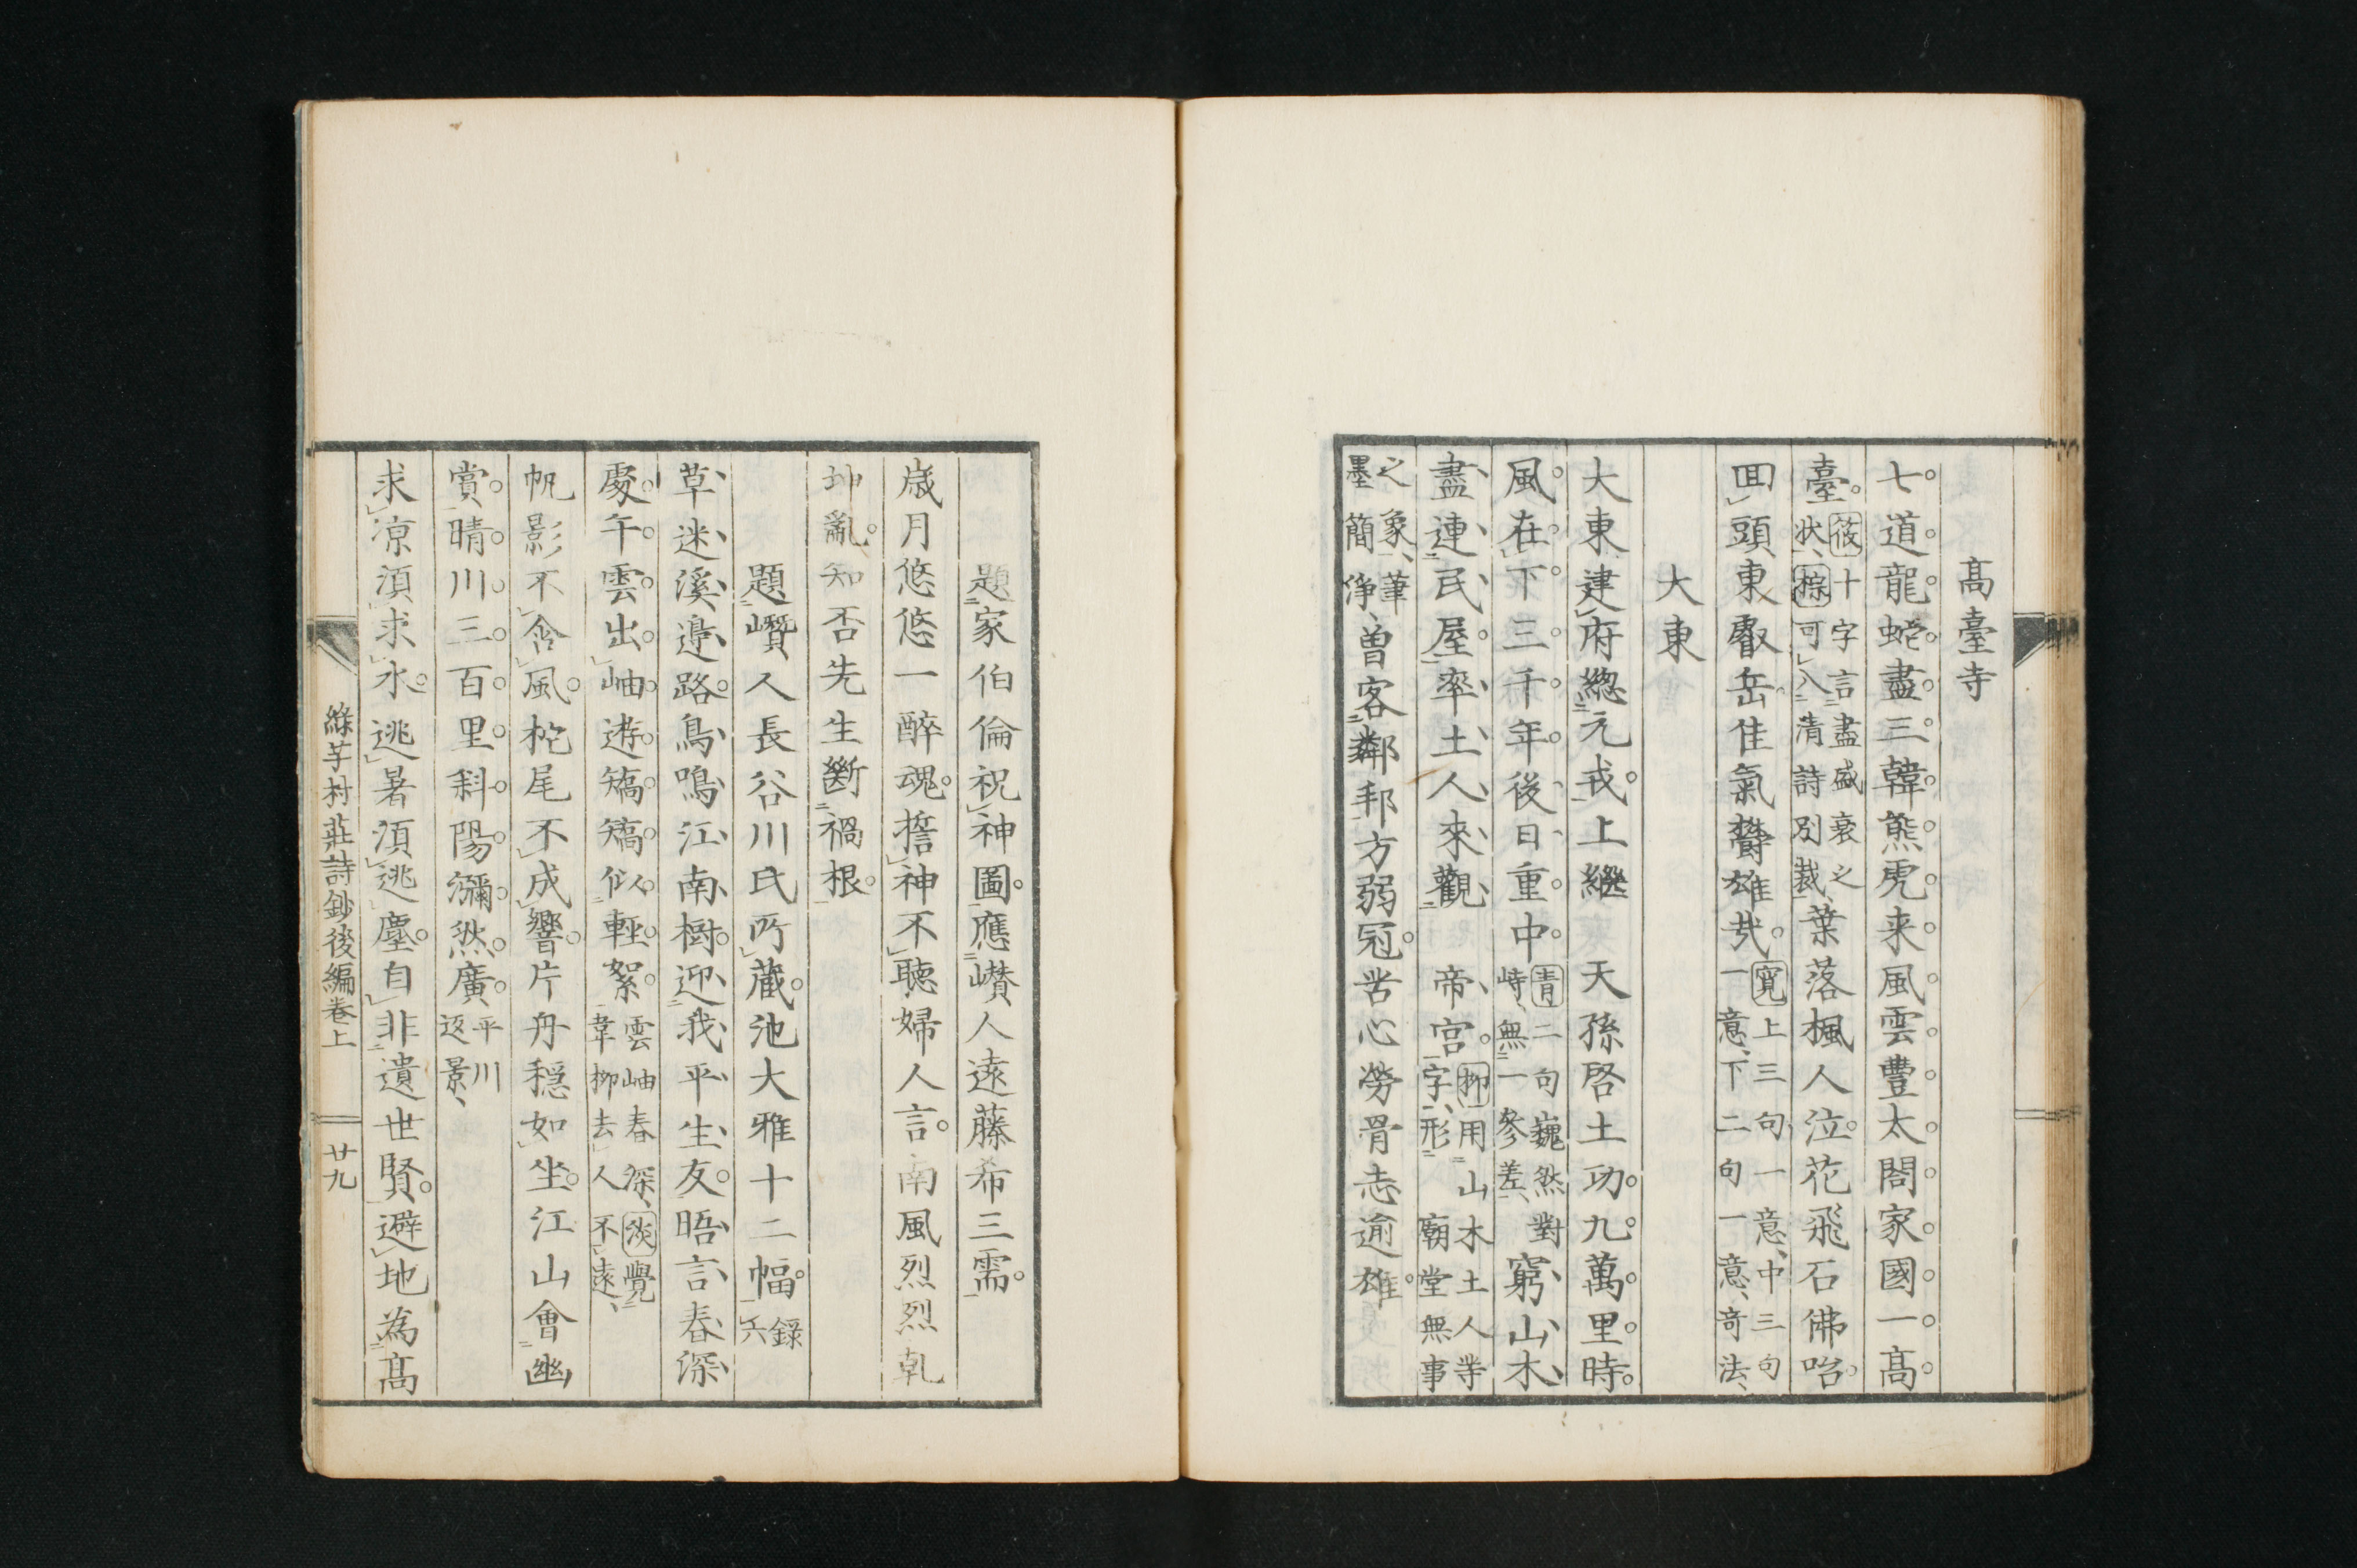 高臺寺
七道龍蛇盡三韓熊虎来風雲豊太閤家國一高
臺筱十字言盡盛衰之
状棕可入清詩別裁葉落楓人泣花飛石佛咍
回頭東叡岳佳氣欝雄㢤寛上三句一意中三句
一意下二句一意奇法
大東
大東建府緫元戎上継　天孫啓土功九萬里時
風在下三千年後日重中青二句巍然對
峙無一參差窮山木
盡連民屋率土人來觀　帝宮柳用山木土人等
字形廟堂無事
之象筆
墨簡浄曽客鄰邦方弱冠苦心勞骨志逾雄
題家伯倫祝神圖應巑人遠藤希三需
歳月悠悠一醉魂擔神不聴婦人言南風烈烈乹
坤亂知否先生斷禍根
題巑人長谷川氏所蔵池大雅十二幅錄六
草迷溪邉路鳥鳴江南樹迎我平生友晤言春深
處午雲出岫遊矯矯似輕絮雲岫春深淡覺
韋柳去人不遠
帆影不含風柁尾不成響片舟穏如坐江山會幽
賞晴川三百里斜陽瀰然廣平川
返景
求凉湏求水逃暑湏逃塵自非遺世賢避地為髙
緑芋村莊詩鈔後編卷上　廿九